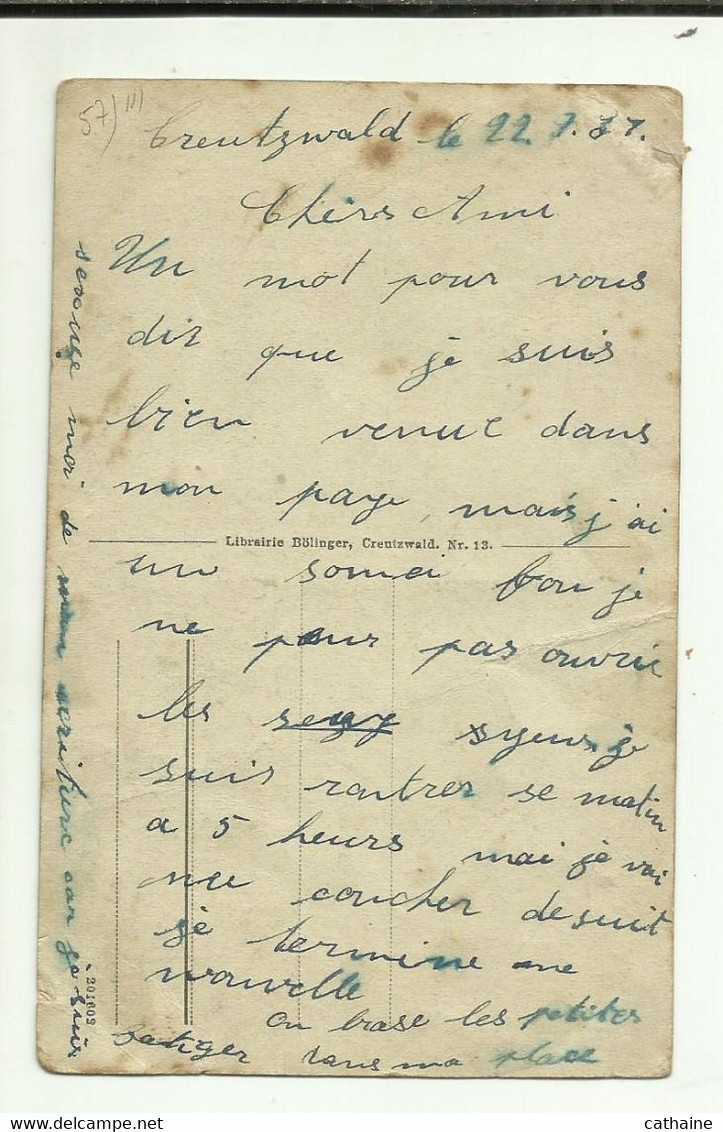 57/III
Creutzwald le 22.7.37.
Chèrs Ami
Un mot pour vous
dir que je suis
bien venue dans
mon paye, mais j'ai
Librairie Bölinger, Creutzwald. Nr. 13.
un somei fou je
ne peus pas ouvrir
les syeus, je
suis rentrer se matin
a 5 heurs mai je vai
me coucher de suit
je termine me
nouvelle
on brase les petites
dans ma place
sexcuse moi de mon acriture car je suis
201603